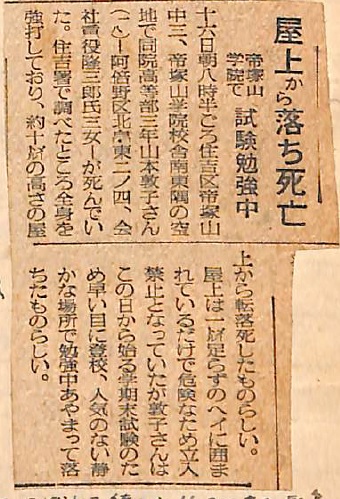 屋上から落ち死亡
帝塚山
学院で
試験勉強中
十六日朝八時半ごろ住吉区帝塚山
中三、帝塚山学院校舎南東隅の空
地で同院高等部三年山本敦子さん
(一八)＝阿倍野区北畠東二ノ四、会
社重役隆三郎氏三女＝が死んでい
た。住吉署で調べたところ全身を
強打しており、約十㍍の高さの屋
上から転落死したものらしい。
屋上は一㍍足らずのヘイに囲ま
れているだけで危険なため立入
禁止となっていたが敦子さんは
この日から始る学期末試験のた
め早い目に登校、人気のない静
かな場所で勉強中あやまって落
ちたものらしい。